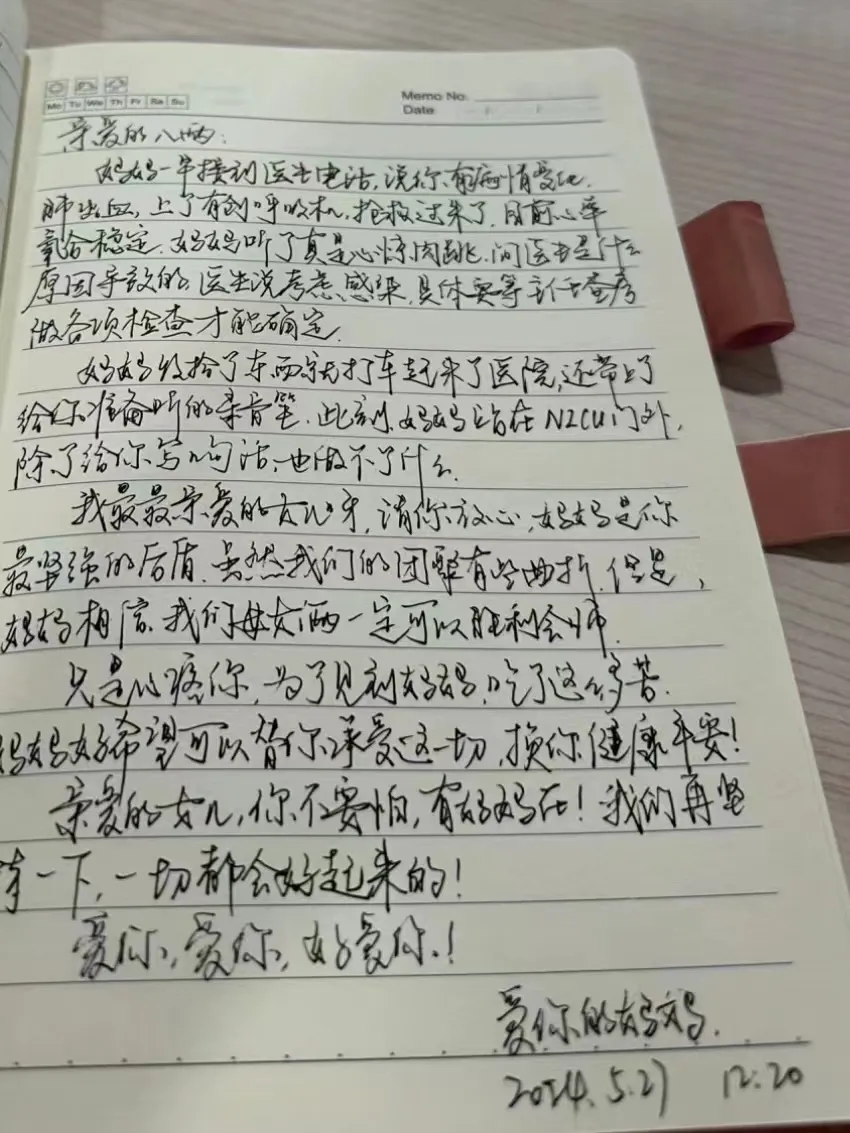 Mo Tu We Th Fr Sa Su
Memo No.
Date
亲爱的八两:
妈妈一早接到医生电话,说你有病情变化.
肺出血,上了有创呼吸机,抢救过来了,目前心率
氧合稳定.妈妈听了真是心惊肉跳.问医生是什么
原因导致的,医生说考虑感染,具体要等主任查房
做各项检查才能确定.
妈妈收拾了东西就打车赶来了医院,还带上了
给你准备听的录音笔.此刻,妈妈站在NICU门外,
除了给你写几句话,也做不了什么.
我最最亲爱的女儿呀,请你放心,妈妈是你
最坚强的后盾.虽然我们的团聚有些曲折.但是,
妈妈相信,我们母女俩一定可以胜利会师.
只是心疼你,为了见到妈妈,吃了这么多苦.
妈妈好希望可以替你承受这一切,换你健康平安!
亲爱的女儿,你不要怕,有妈妈在!我们再坚
持一下,一切都会好起来的!
爱你,爱你,好爱你!
爱你的妈妈.
2024.5.27 12:20